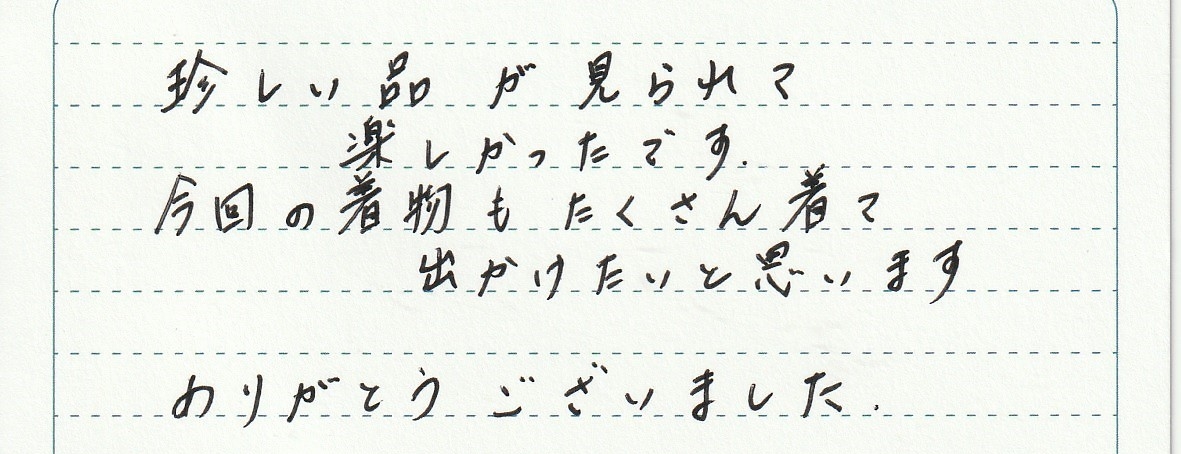 珍しい品が見られて
楽しかったです.
今回の着物もたくさん着て
出かけたいと思います
ありがとうございました.